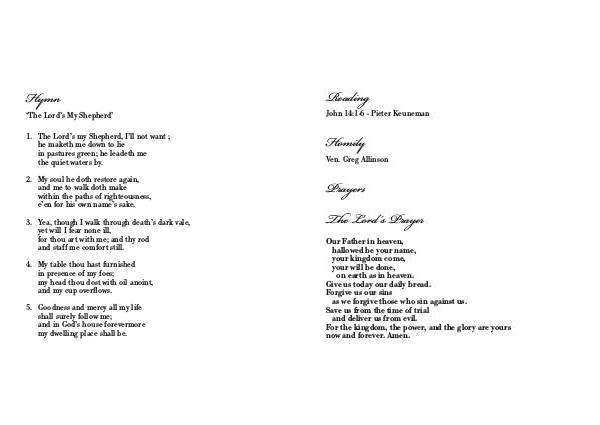 Hymn
‘The Lord’s My Shepherd’
1. The Lord’s my Shepherd, I’ll not want ;
he maketh me down to lie
in pastures green; he leadeth me
the quiet waters by.
2. My soul he doth restore again,
and me to walk doth make
within the paths of righteousness,
e’en for his own name’s sake.
3. Yea, though I walk through death’s dark vale,
yet will I fear none ill,
for thou art with me; and thy rod
and staff me comfort still.
4. My table thou hast furnished
in presence of my foes;
my head thou dost with oil anoint,
and my cup overflows.
5. Goodness and mercy all my life
shall surely follow me;
and in God’s house forevermore
my dwelling place shall be.
Reading
John 14:1-6 - Pieter Keuneman
Homily
Ven. Greg Allinson
Prayers
The Lord’s Prayer
Our Father in heaven,
hallowed be your name,
your kingdom come,
your will be done,
on earth as in heaven.
Give us today our daily bread.
Forgive us our sins
as we forgive those who sin against us.
Save us from the time of trial
and deliver us from evil.
For the kingdom, the power, and the glory are yours
now and forever. Amen.